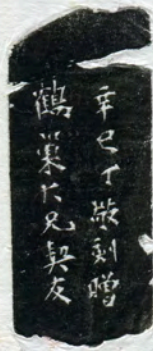 辛巳丁敬刻贈
鶴巢大兄契友